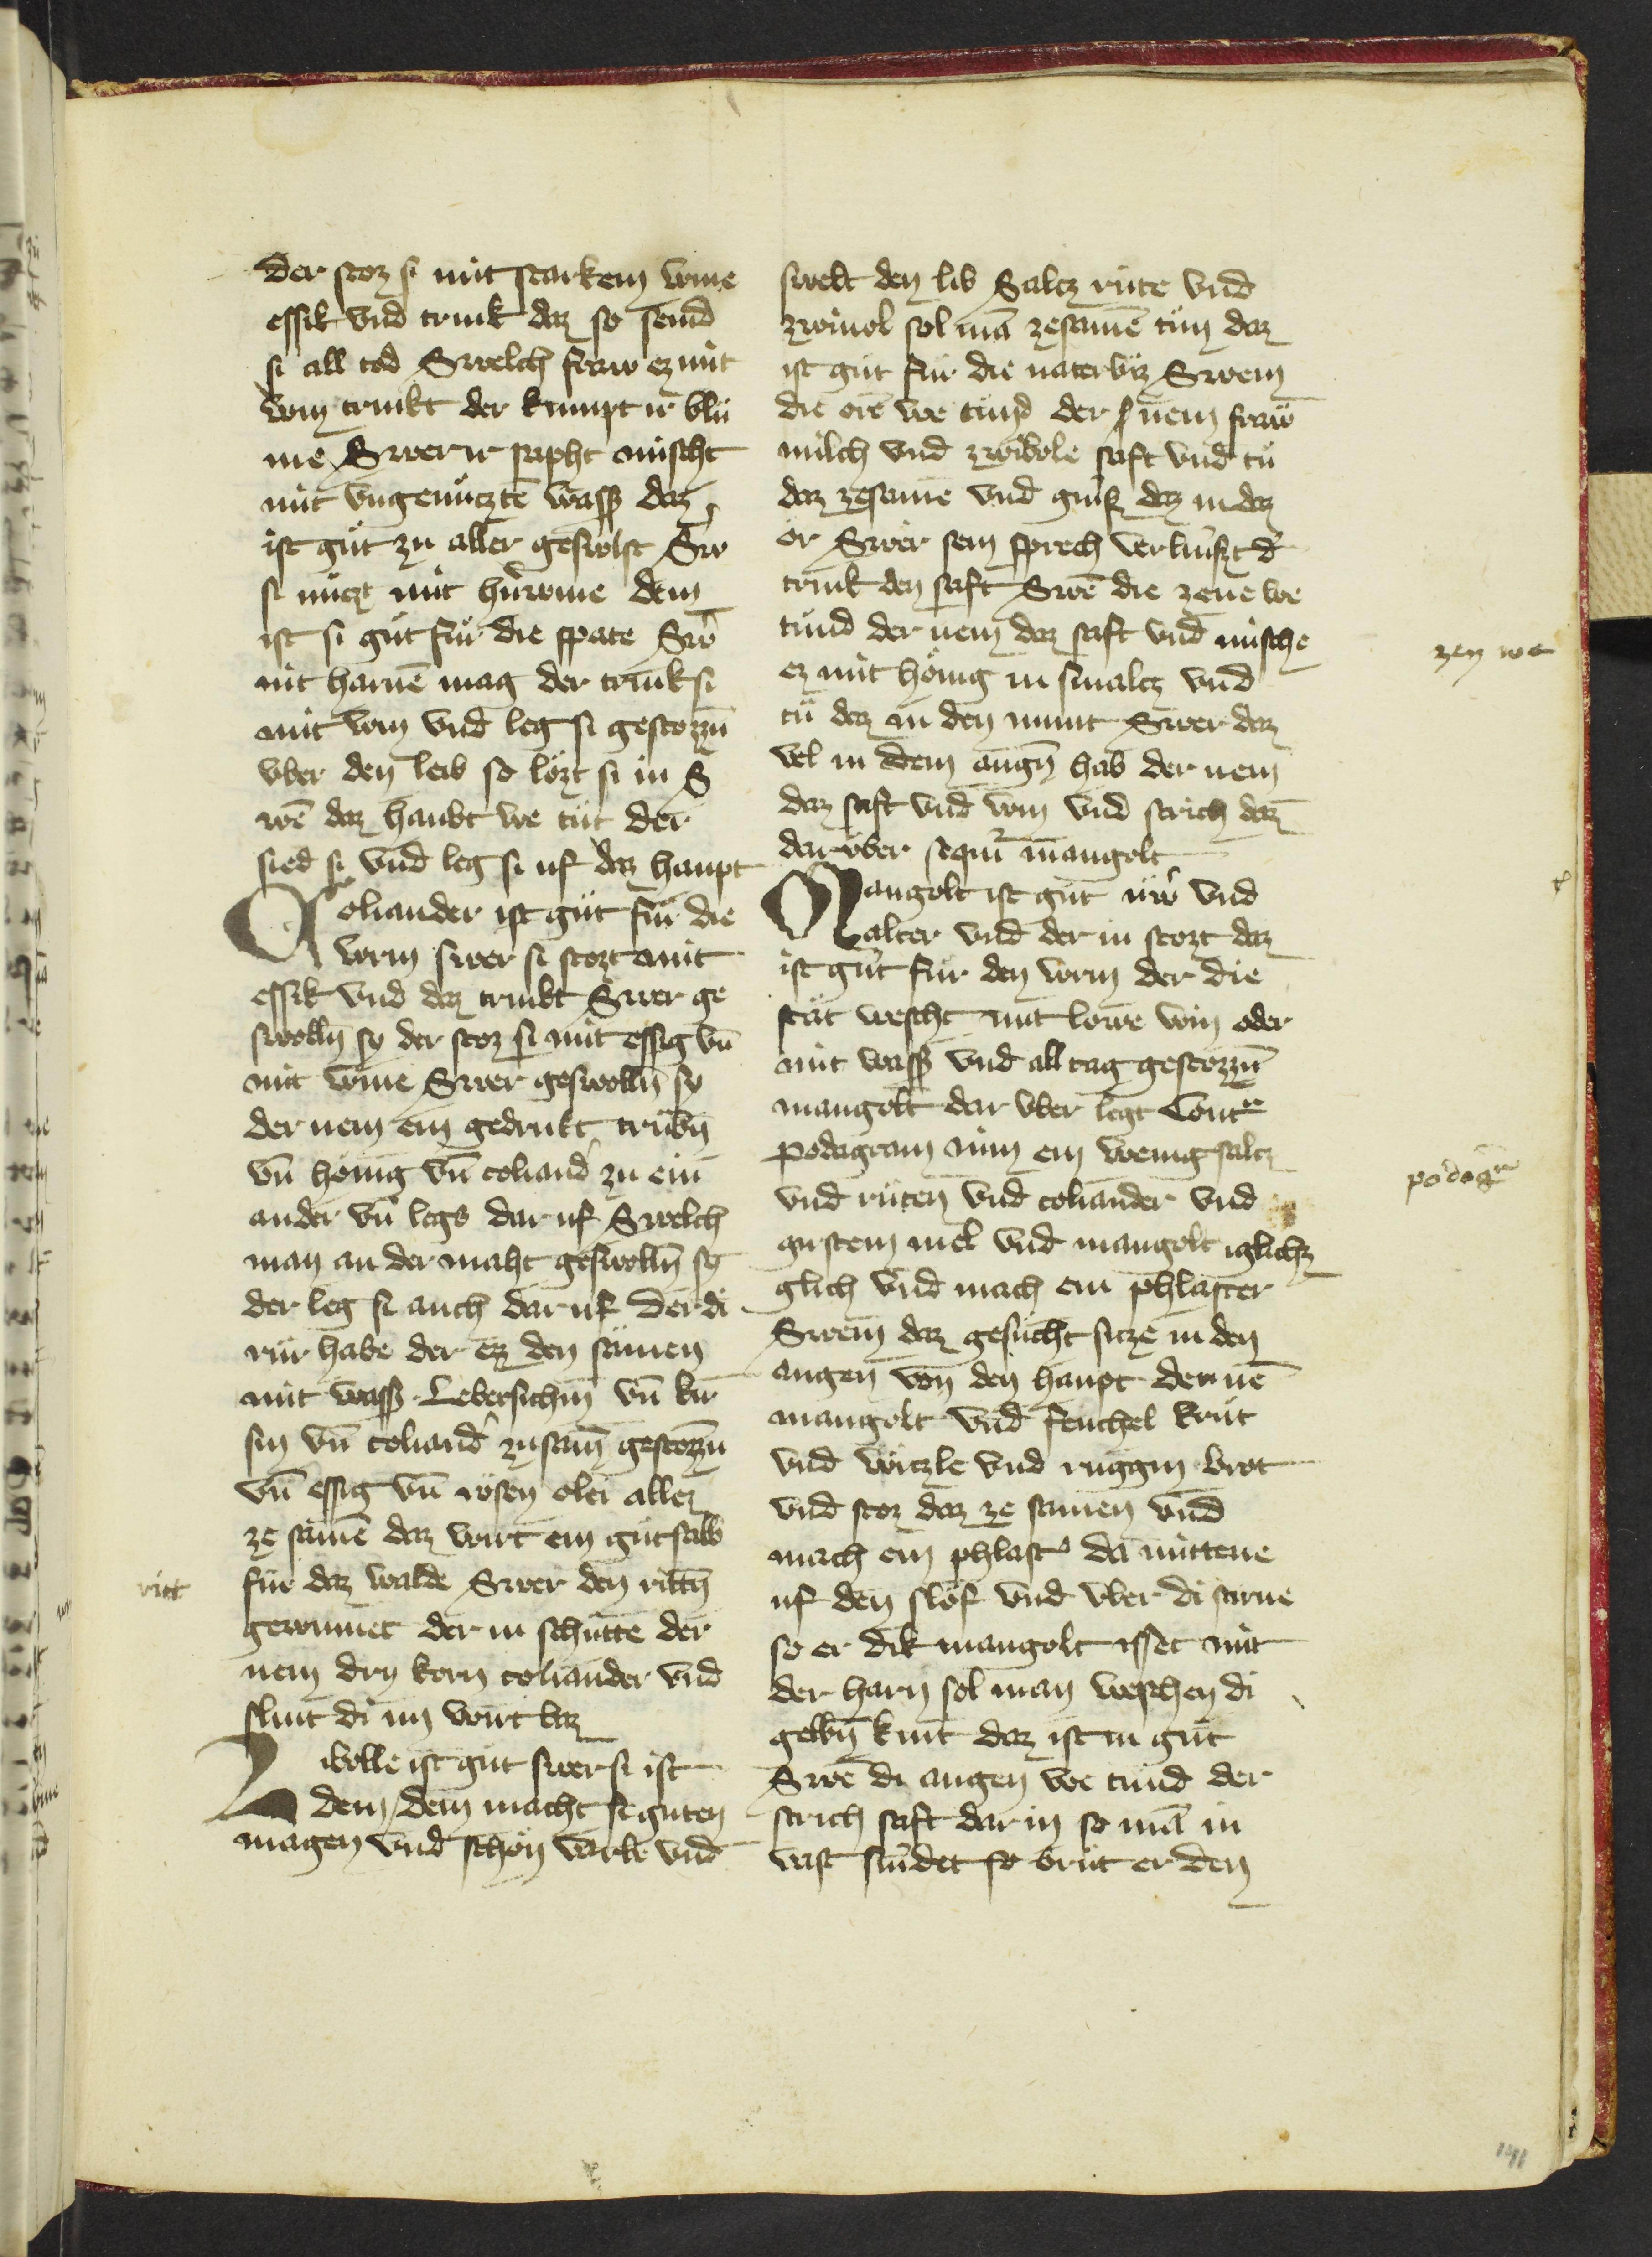 der stoz si mit starkem wine
essik vnd trink daz so seind
si all tod Swelch fraw ez mit
win trinkt der kumpt ir blů
me Swer ir sapht mischt
mit vngenůtztē wass daz
ist gůt zu aller geswlst Sw
si nůtzt mit hůrwine dem
ist si gůt fůr die spate Sw̄
nit harnē mag der trink si
mit win vnd leg si gestozzn̄
vber den leib so lözt si in S
wē daz haubt we tůt der
sied si vnd leg si uf daz haupt
Coliander ist gůt fůr die
wrm swer si stozt mit
essik vnd daz trinkt Swer ge
swolln̄ sy der stoz si mit essig vn̄
mit wine Swer geswolln̄ sy
der nem ein gedrukt trůbn̄
vn̄ honig vn̄ coliand̾ zu ein
ander vn̄ legs dar uf Swelch
man an der maht geswolln̄ sy
der leg si auch dar uf der di
růr habe der ezz den sůmen
mit wass Lebersichin vn̄ kir
sin vn̄ coliand̾ zusam̄ gestozzn̄
vn̄ essig vn̄ rosen olei allez
ze samē daz wirt ein gůt salb
fůr daz walde Swer den rittn̄
gewinnet der in schůtte der
nem dry korn coliander vnd
slint di im wirt baz
Zibolle ist gut swer si ist
dem dem macht si guten
magen vnd schön varbe vnd
swelt den lib Saltz růte vnd
zwiuol sol mā zesamē tůn daz
ist gůt fůr die naterbiz Swem
die orē we tůnd der nem fraw̄
milch vnd zwibole saft vnd tů
daz zesame vnd guiß daz in daz
or Swer sein sprech verlůszt d̾
trink den saft Swē die zene we
tůnd der nem daz saft vnd mische
ez mit hönig in smaltz vnd
tů daz in den munt Swer daz
vel in dem augn̄ hab der nem
daz saft vnd win vnd strich daz
dar vber sequit̾ mangolt
Mangolt ist gůt nůw̾ vnd
alter vnd der in stozt daz
ist gůt fůr den wrm der die
stat wescht mit lowē win oder
mit wass vnd all tag gestozzn̄
mangolt dar vber legt Contra
podagram nim ein wenig saltz
vnd růten vnd coliander vnd
girstein mel vnd mangolt iglichz
glich vnd mach ein phlaster
Swem daz gesůcht sitze in den
augen von den haupt der nē
mangolt vnd fenchel krůt
vnd wůtzle vnd ruggin brot
vnd stoz daz ze samen vnd
mach ein phlast̾ da mittene
uf den slof vnd vber di stirne
so er dik mangolt isset mit
der harn sol man weschen di
gelbn̄ kint daz ist in gůt
Swē di augen we tůnd der
strich saft dar in so mā in
vast sůndet so bůt er den
zen we
podag̾
ritt